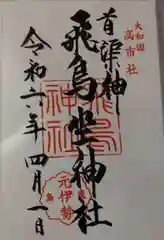 大和國
高市社
首渠神
飛鳥坐神社
令和六年四月一日
飛鳥
神社
元伊勢